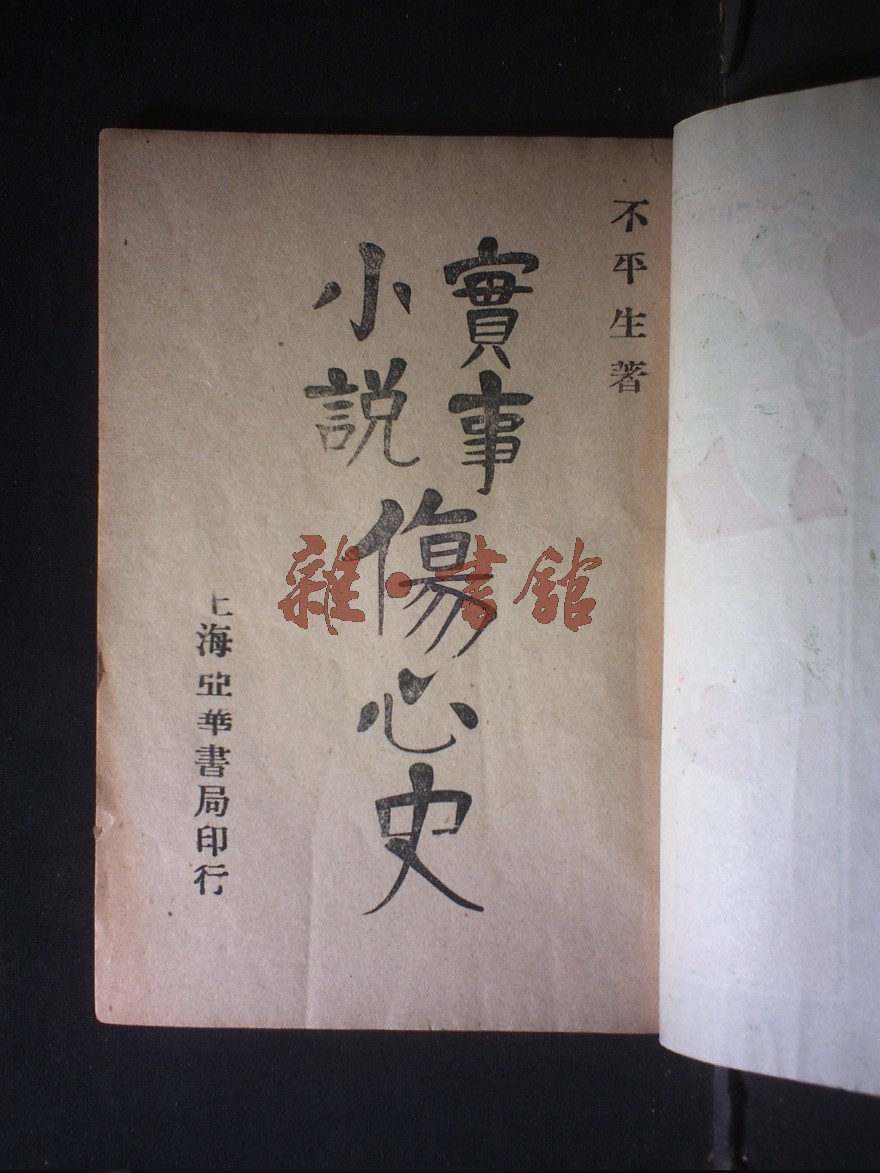 不平生著
實事
小説
傷心史
上海亞華書局印行
雜·書館